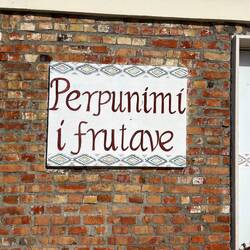 Perpunimi
i frutave